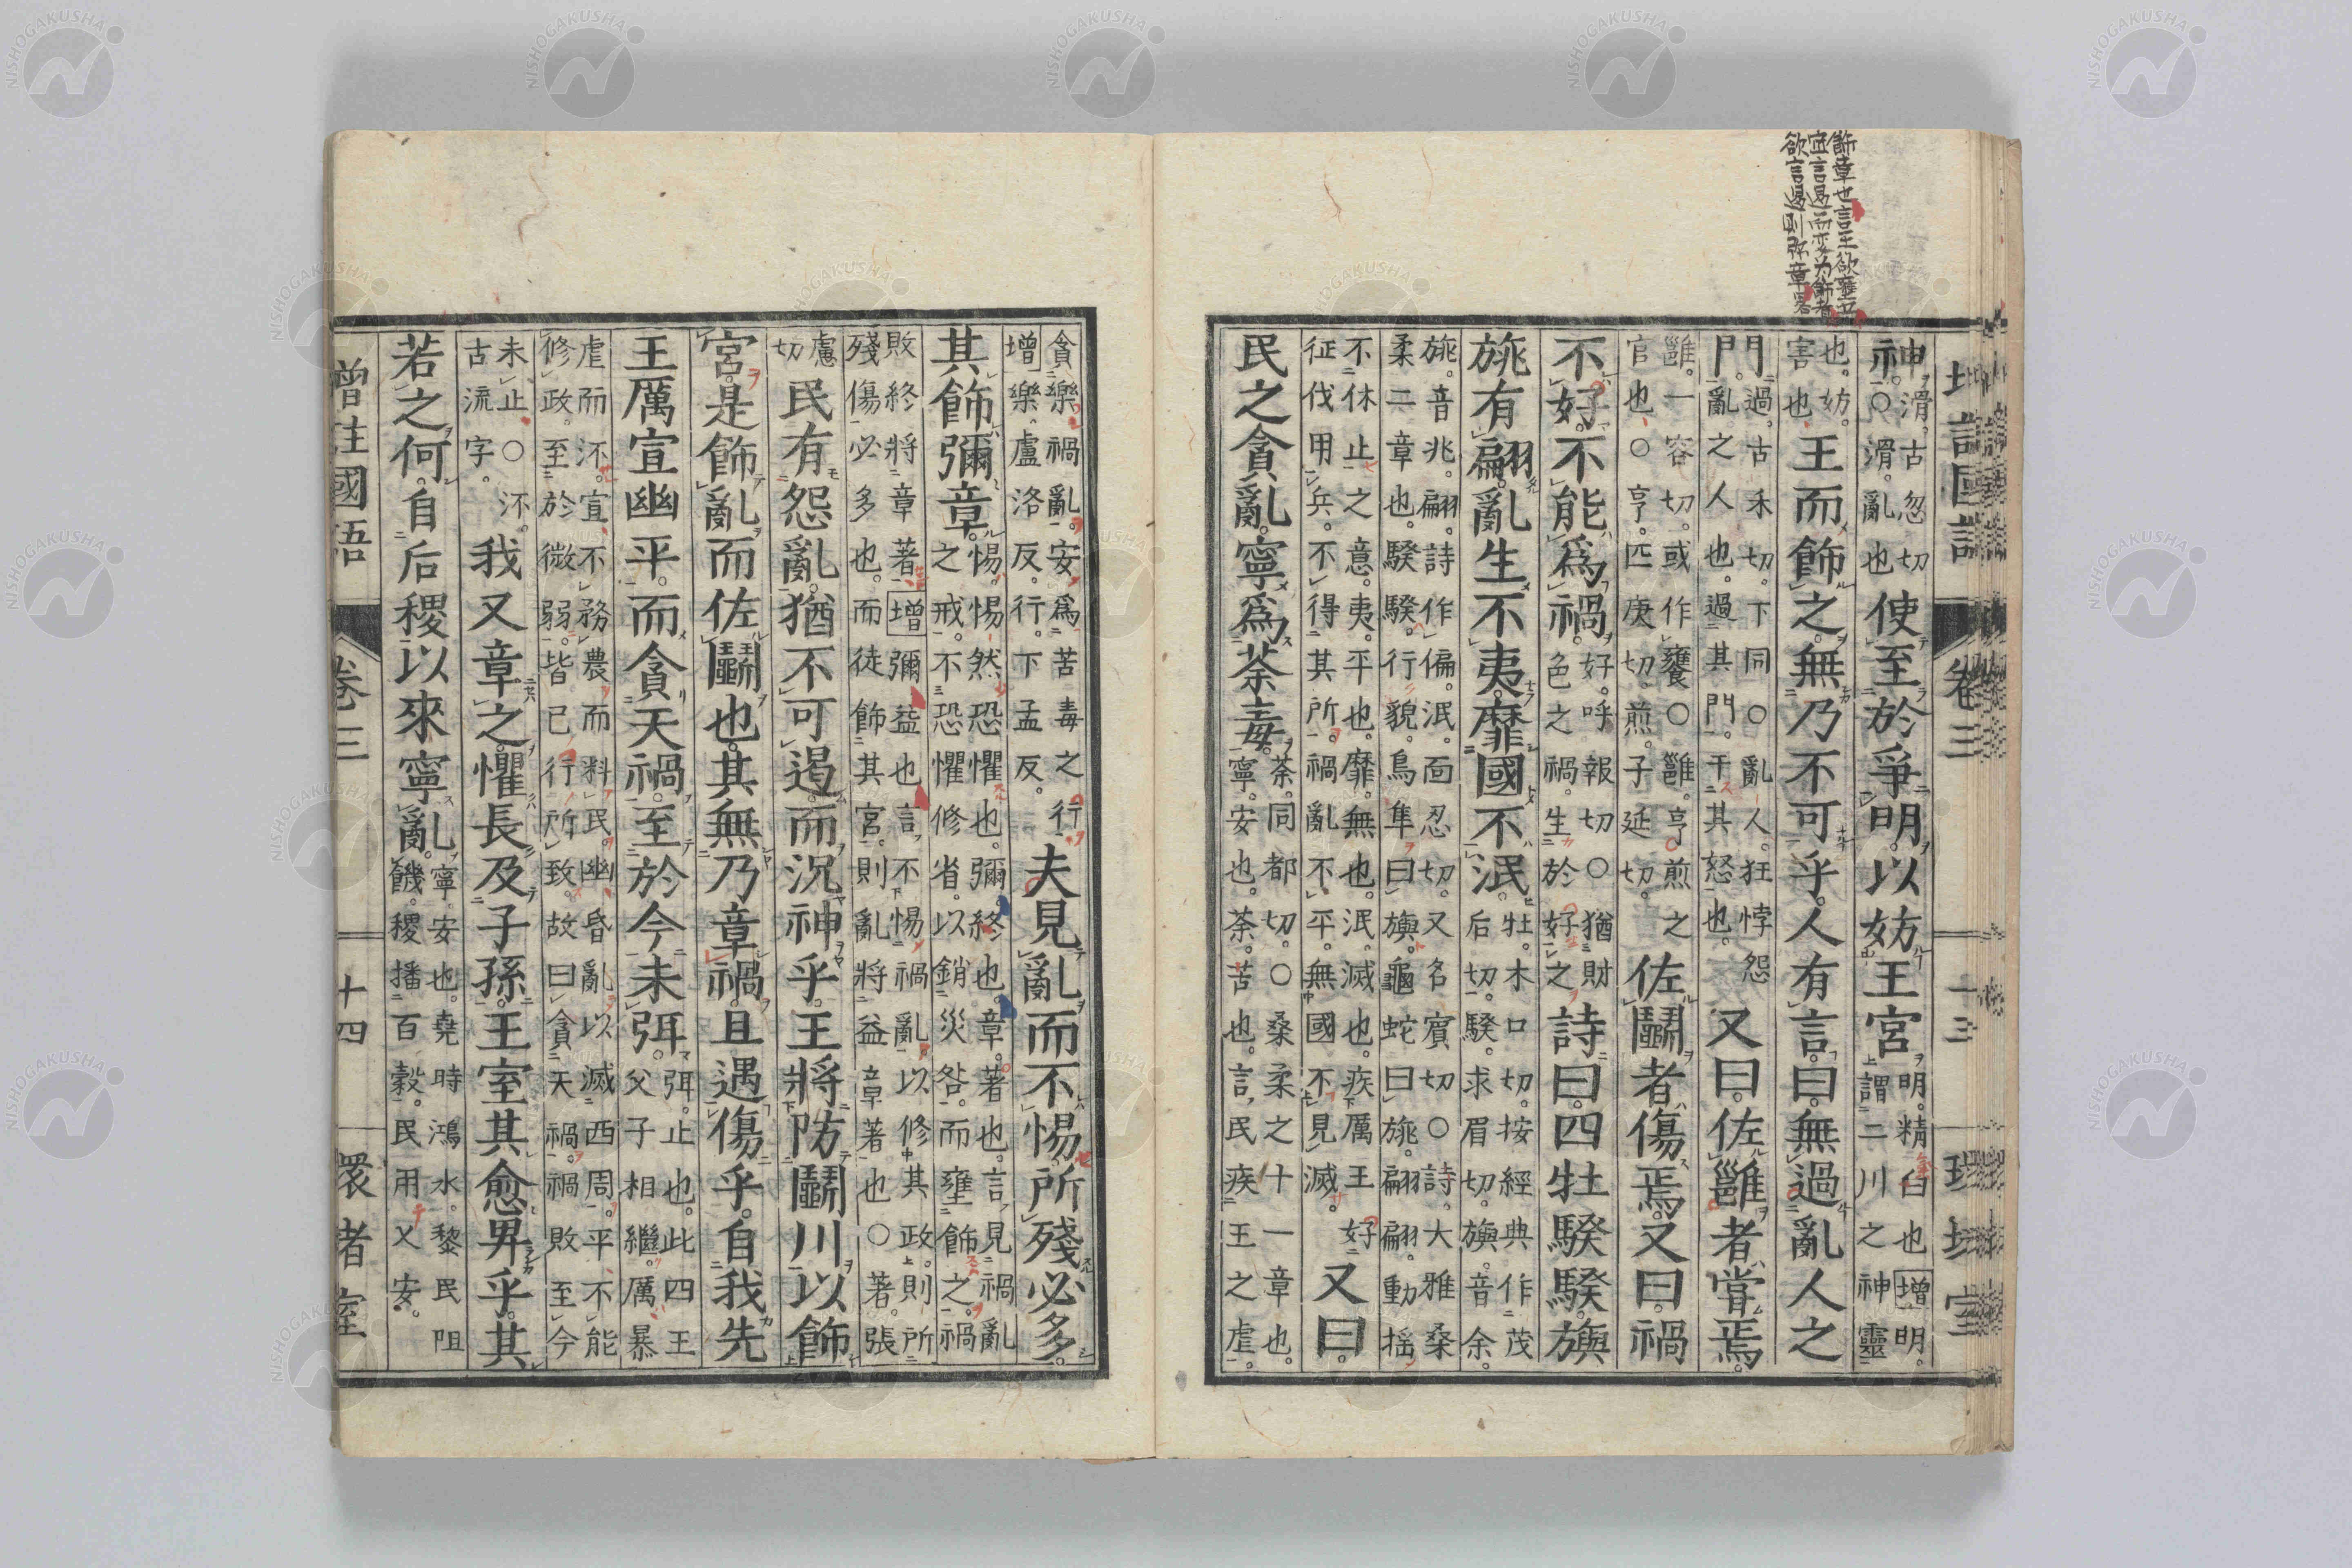 神滑。古忽切○滑。亂也使至於爭明。以妨王宮明。精白也增明。謂二川之神靈
也。妨。害也王而飾之。無乃不可乎。人有言。曰。無過亂人之
門。過。古禾切。下同○亂人。狂悖怨亂之人也。過其門。干其怒也。又曰。佐雝者嘗焉。
雝。一容切。或作饔○雝。亨煎之官也○亨。匹庚切。煎。子延切。佐鬭者傷焉。又曰。禍
不好。不能爲禍。好。呼報切○猶財色之禍。生於好之詩曰。四牡騤騤。旟
旐有翩。亂生不夷。靡國不泯。牡。木口切。按經典作茂后切。騤。求眉切。旟。音余。
旐。音兆。翩。詩作偏。泯。面忍切。又名賓切○詩。大雅桑柔二章也。騤騤。行貌。鳥隼曰旟。龜蛇曰旐。翩翩。動搖
不休止之意。夷。平也。靡。無也。泯。滅也。疾厲王好征伐用兵。不得其所。禍亂不平。無國不見滅。又曰。
民之貪亂。寧爲荼毒。荼。同都切。○桑柔之十一章也。寧。安也。荼。苦也。言民疾王之虐。
坫詁國語 卷三 十三
貪樂禍亂。安爲苦毒之行增樂。盧洛反。行。下孟反。夫見亂而不惕。所殘必多。
其飾彌章。惕。惕然恐懼也。彌。終也。章。著也。言見禍亂之戒。不恐懼修省。以銷災咎。而壅飾之。禍
敗終將章著增彌益也言不惕禍亂。以修其政。則所殘傷必多也。而徒飾其宮。則亂將益章著也○著。張
慮切民有怨亂。猶不可遏。而況神乎。王將防鬭川以飾
宮。是飾亂而佐鬭也。其無乃章禍。且遇傷乎。自我先
王厲宣幽平。而貪天禍。至於今未弭。弭。止也。此四王父子相繼。厲暴
虐而流。宣不務農而料民。幽昏亂以滅西周。平不能修政。至於微弱。皆已行所致。故曰貪天禍。禍敗至今
未止。○㳅。古流字。我又章之。懼長及子孫。王室其愈卑乎。其
若之何。自后稷以來寧亂。寧。安也。堯時鴻水。黎民阻饑。稷播百穀。民用乂安。
增註國語 卷三 十四